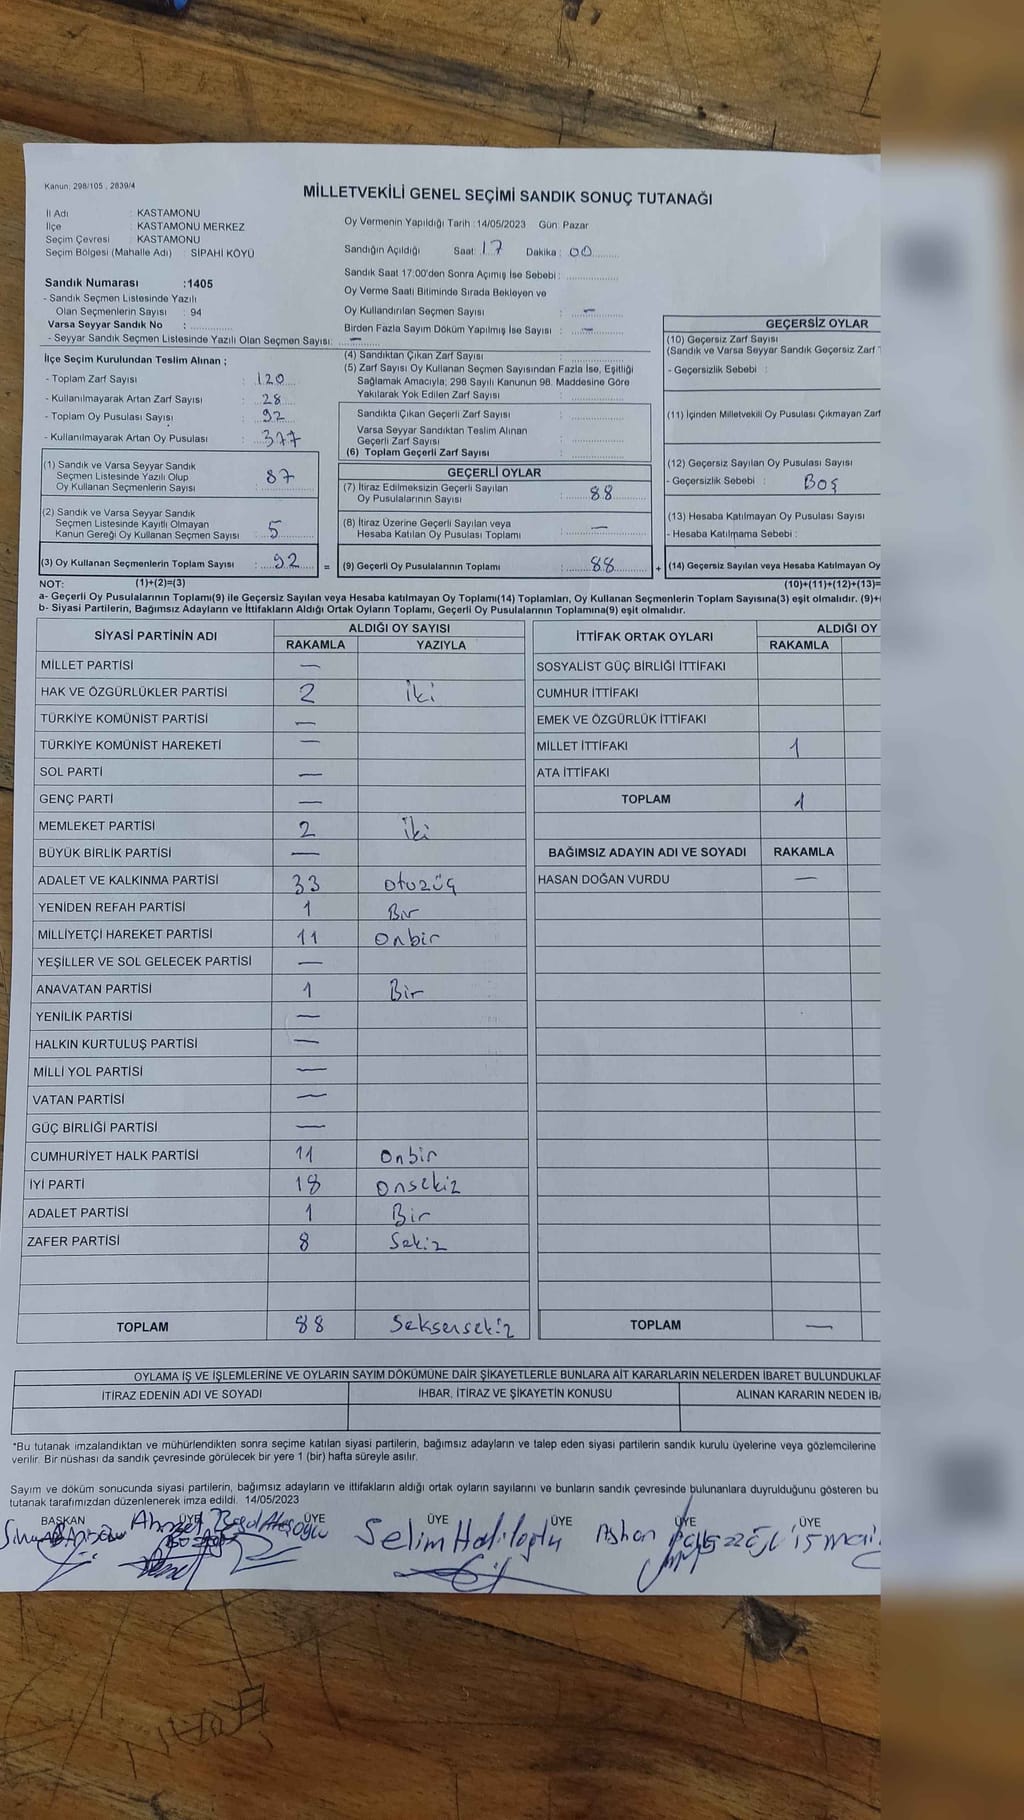 Kanun. 298/105 , 2839/4
MİLLETVEKİLİ GENEL SEÇİMİ SANDIK SONUÇ TUTANAĞI
İl Adı : KASTAMONU
İlçe : KASTAMONU MERKEZ
Seçim Çevresi : KASTAMONU
Seçim Bölgesi (Mahalle Adı) : SİPAHİ KÖYÜ
Sandık Numarası :1405
- Sandık Seçmen Listesinde Yazılı
Olan Seçmenlerin Sayısı : 94
Varsa Seyyar Sandık No :
- Seyyar Sandık Seçmen Listesinde Yazılı Olan Seçmen Sayısı: —
Oy Vermenin Yapıldığı Tarih :14/05/2023 Gün: Pazar
Sandığın Açıldığı Saat: 17 Dakika : 00
Sandık Saat 17:00'den Sonra Açımış İse Sebebi :
Oy Verme Saati Bitiminde Sırada Bekleyen ve
Oy Kullandırılan Seçmen Sayısı : —
Birden Fazla Sayım Döküm Yapılmış İse Sayısı : —
İlçe Seçim Kurulundan Teslim Alınan ;
- Toplam Zarf Sayısı : 120
- Kullanılmayarak Artan Zarf Sayısı : 28
- Toplam Oy Pusulası Sayısı : 92
- Kullanılmayarak Artan Oy Pusulası : 377
(1) Sandık ve Varsa Seyyar Sandık
Seçmen Listesinde Yazılı Olup
Oy Kullanan Seçmenlerin Sayısı : 87
(2) Sandık ve Varsa Seyyar Sandık
Seçmen Listesinde Kayıtlı Olmayan
Kanun Gereği Oy Kullanan Seçmen Sayısı : 5
(3) Oy Kullanan Seçmenlerin Toplam Sayısı : 92 =
(4) Sandıktan Çıkan Zarf Sayısı :
(5) Zarf Sayısı Oy Kullanan Seçmen Sayısından Fazla İse, Eşitliği
Sağlamak Amacıyla; 298 Sayılı Kanunun 98. Maddesine Göre
Yakılarak Yok Edilen Zarf Sayısı :
Sandıkta Çıkan Geçerli Zarf Sayısı :
Varsa Seyyar Sandıktan Teslim Alınan
Geçerli Zarf Sayısı :
(6) Toplam Geçerli Zarf Sayısı :
GEÇERLİ OYLAR
(7) İtiraz Edilmeksizin Geçerli Sayılan
Oy Pusulalarının Sayısı : 88
(8) İtiraz Üzerine Geçerli Sayılan veya
Hesaba Katılan Oy Pusulası Toplamı : —
(9) Geçerli Oy Pusulalarının Toplamı : 88 +
GEÇERSİZ OYLAR
(10) Geçersiz Zarf Sayısı
(Sandık ve Varsa Seyyar Sandık Geçersiz Zarf
- Geçersizlik Sebebi :
(11) İçinden Milletvekili Oy Pusulası Çıkmayan Zarf
(12) Geçersiz Sayılan Oy Pusulası Sayısı
- Geçersizlik Sebebi : Boş
(13) Hesaba Katılmayan Oy Pusulası Sayısı
- Hesaba Katılmama Sebebi :
(14) Geçersiz Sayılan veya Hesaba Katılmayan Oy
NOT: (1)+(2)=(3) (10)+(11)+(12)+(13)=
a- Geçerli Oy Pusulalarının Toplamı(9) ile Geçersiz Sayılan veya Hesaba katılmayan Oy Toplamı(14) Toplamları, Oy Kullanan Seçmenlerin Toplam Sayısına(3) eşit olmalıdır. (9)+(
b- Siyasi Partilerin, Bağımsız Adayların ve İttifakların Aldığı Ortak Oyların Toplamı, Geçerli Oy Pusulalarının Toplamına(9) eşit olmalıdır.
SİYASİ PARTİNİN ADI ALDIĞI OY SAYISI
RAKAMLA YAZIYLA
MİLLET PARTİSİ —
HAK VE ÖZGÜRLÜKLER PARTİSİ 2 iki
TÜRKİYE KOMÜNİST PARTİSİ —
TÜRKİYE KOMÜNİST HAREKETİ —
SOL PARTİ —
GENÇ PARTİ —
MEMLEKET PARTİSİ 2 iki
BÜYÜK BİRLİK PARTİSİ —
ADALET VE KALKINMA PARTİSİ 33 otuzüç
YENİDEN REFAH PARTİSİ 1 Bir
MİLLİYETÇİ HAREKET PARTİSİ 11 onbir
YEŞİLLER VE SOL GELECEK PARTİSİ —
ANAVATAN PARTİSİ 1 Bir
YENİLİK PARTİSİ —
HALKIN KURTULUŞ PARTİSİ —
MİLLİ YOL PARTİSİ —
VATAN PARTİSİ —
GÜÇ BİRLİĞİ PARTİSİ —
CUMHURİYET HALK PARTİSİ 11 onbir
İYİ PARTİ 18 onsekiz
ADALET PARTİSİ 1 Bir
ZAFER PARTİSİ 8 Sekiz
TOPLAM 88 Seksensekiz
İTTİFAK ORTAK OYLARI ALDIĞI OY
RAKAMLA
SOSYALİST GÜÇ BİRLİĞİ İTTİFAKI
CUMHUR İTTİFAKI
EMEK VE ÖZGÜRLÜK İTTİFAKI
MİLLET İTTİFAKI 1
ATA İTTİFAKI
TOPLAM 1
BAĞIMSIZ ADAYIN ADI VE SOYADI RAKAMLA
HASAN DOĞAN VURDU —
TOPLAM —
OYLAMA İŞ VE İŞLEMLERİNE VE OYLARIN SAYIM DÖKÜMÜNE DAİR ŞİKAYETLERLE BUNLARA AİT KARARLARIN NELERDEN İBARET BULUNDUKLAR
İTİRAZ EDENİN ADI VE SOYADI İHBAR, İTİRAZ VE ŞİKAYETİN KONUSU ALINAN KARARIN NEDEN İBA
*Bu tutanak imzalandıktan ve mühürlendikten sonra seçime katılan siyasi partilerin, bağımsız adayların ve talep eden siyasi partilerin sandık kurulu üyelerine veya gözlemcilerine
verilir. Bir nüshası da sandık çevresinde görülecek bir yere 1 (bir) hafta süreyle asılır.
Sayım ve döküm sonucunda siyasi partilerin, bağımsız adayların ve ittifakların aldığı ortak oyların sayılarını ve bunların sandık çevresinde bulunanlara duyrulduğunu gösteren bu
tutanak tarafımızdan düzenlenerek imza edildi. 14/05/2023
BAŞKAN ÜYE ÜYE ÜYE ÜYE ÜYE ÜYE
Ahmet Selim Haliloğlu